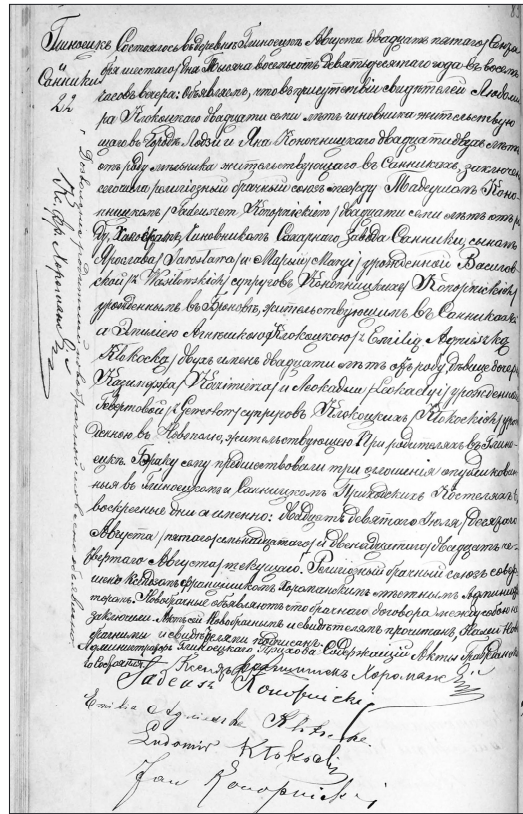 83
Глиноецкъ
Санники
22
Состоялось въ деревнѣ Глиноецкъ Августа двадцать пятаго / Сентя-
бря шестаго / дня Тысяча восемьсотъ девятидесятаго года въ восемь
часовъ вечера: Объявляемъ, что въ присутствіи свидѣтелей Людоми-
ра Клокоцкаго двадцати семи лѣтъ жительствую-
щаго въ Городѣ Лодзи и Яна Конопницкаго двадцати двухъ лѣтъ
отъ роду жительствующаго въ Санникахъ, заключенъ
сего числа религіозный брачный союзъ между Тадеушомъ Коно-
пницкимъ / Tadeuszem Konopnickim / двадцати семи лѣтъ отъ ро-
ду, Холостымъ, Чиновникомъ Сахарнаго Завода Санники, сыномъ
Ярослава / Jarosława / и Маріи / Maryi / урожденной Василов-
ской / z Wasiłowskich / супруговъ Конопницкихъ / Konopnickich /
урожденнымъ въ Броновѣ, жительствующимъ въ Санникахъ
а Эмиліею Агнешкою Клокоцкою / z Emilią Agnieszką
Kłokocką / двухъ именъ двадцати лѣтъ отъ роду, дѣвицею дочерью
Казиміра / Kazimierza / и Леокадіи / Leokadyi / урожденной
супруговъ Клокоцкихъ / Kłokockich / уро-
жденною въ жительствующею При родителяхъ въ Глино-
ецкѣ. Браку сему предшествовали три оглашенія опубликован-
ныя въ Глиноецкомъ и Санницкомъ Приходскихъ Костелахъ въ
воскресные дни а именно: двадцать девятаго Іюля / десятаго
Августа / пятаго / семнадцатаго / и двенадцатаго / двадцать че-
твертаго Августа / текущаго. Религіозный брачный союзъ совер-
шенъ Ксендзомъ Францишкомъ Хороманскимъ мѣстнымъ Админис-
траторомъ. Новобрачные объявляютъ что брачнаго договора между собою не
заключили. Актъ сей Новобрачнымъ и свидѣтелямъ прочитанъ, Нами Ново-
брачными и свидѣтелями подписанъ.
Администраторъ Глиноецкаго Прихода Содержащій Акты Гражданскаго
Состоянія Ксендзъ Францишекъ Хороманскій
Tadeusz Konopnicki
Emilia Agnieszka Kłokocka.
Ludomir Kłokocki
Jan Konopnicki